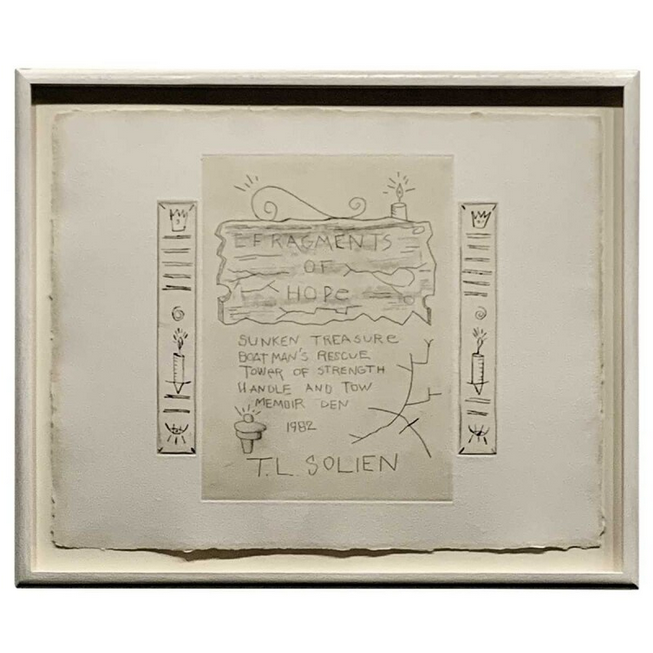 FRAGMENTS
OF
HOPe
SUNKEN TREASURe
BOATMAN'S RESCUE
TOWeR OF STRENGTH
HANDLE AND TOW
MEMOIR DEN
1982
T.L. SOLIEN